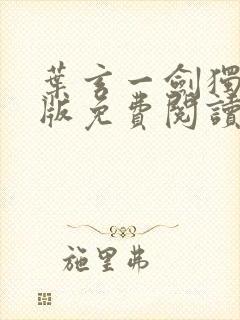 葉玄一劍獨
版免費閱讀
施里弗